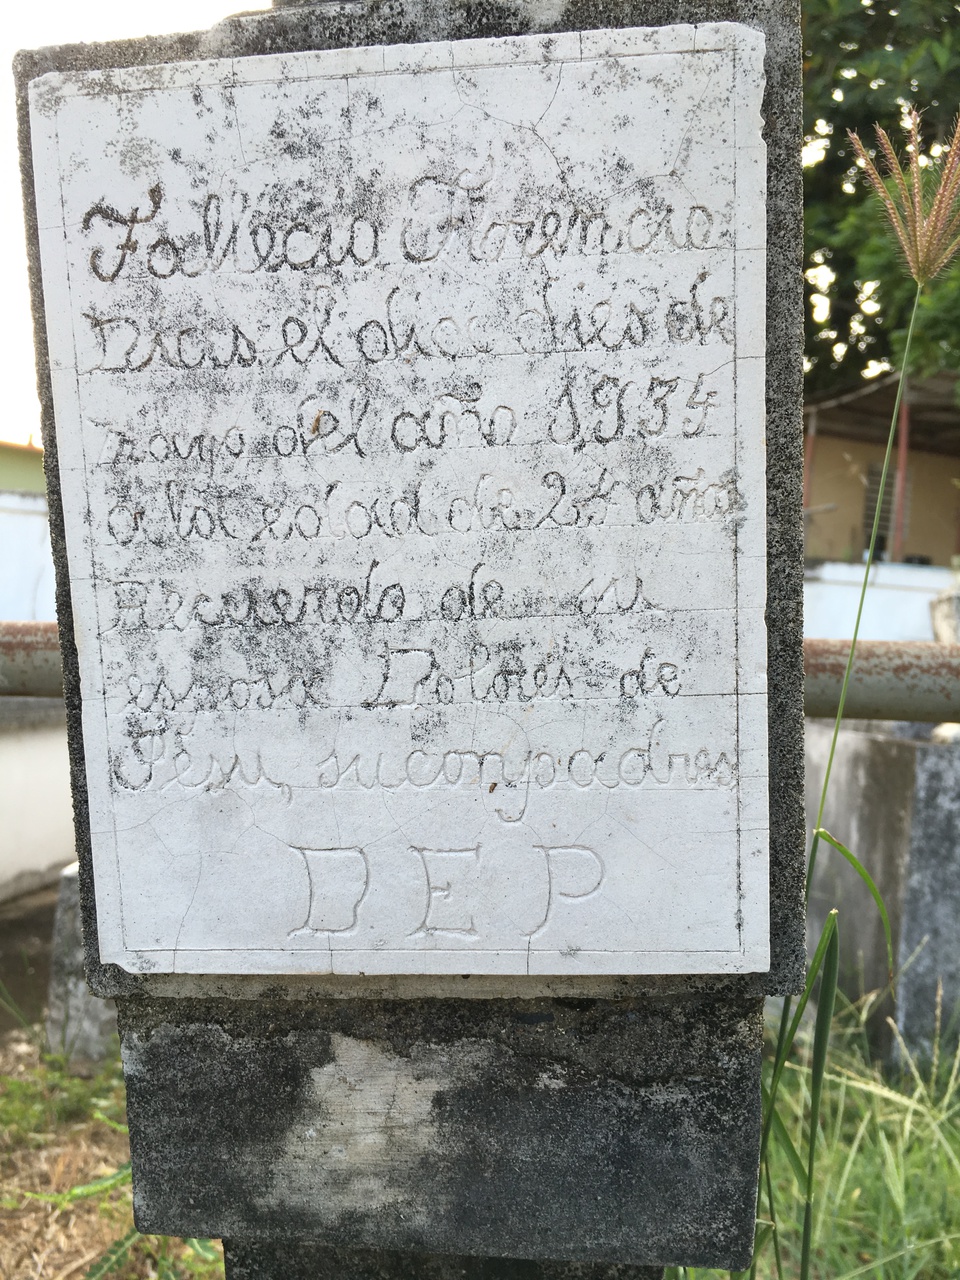 Fallecio Florencio
Dias el dia dies de
mayo del año 1934
a la edad de 24 años
Recuerdo de su
esposa Dolores de
Jesu, su conpadres
D E P